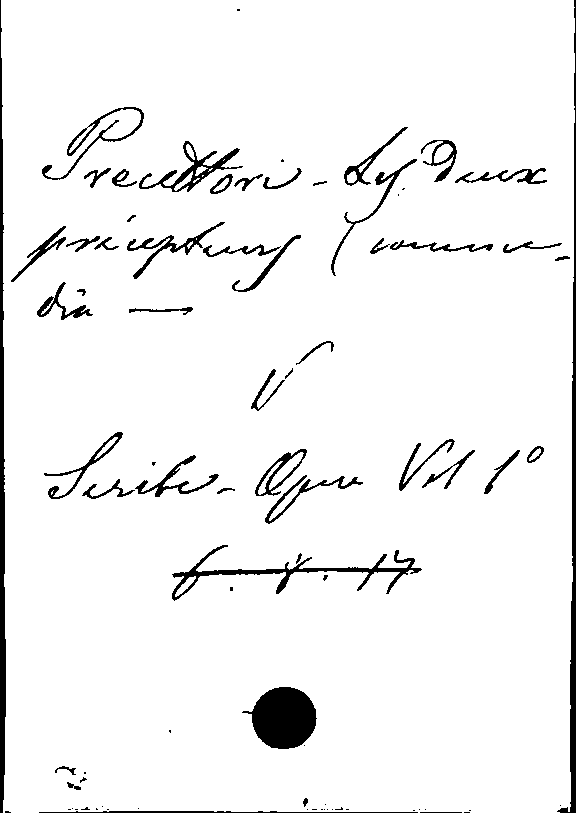 Precettori - Les Deux
précepteurs (comme-
dia —
V
Scribe - Opere Vol 1º
6. 8. 17